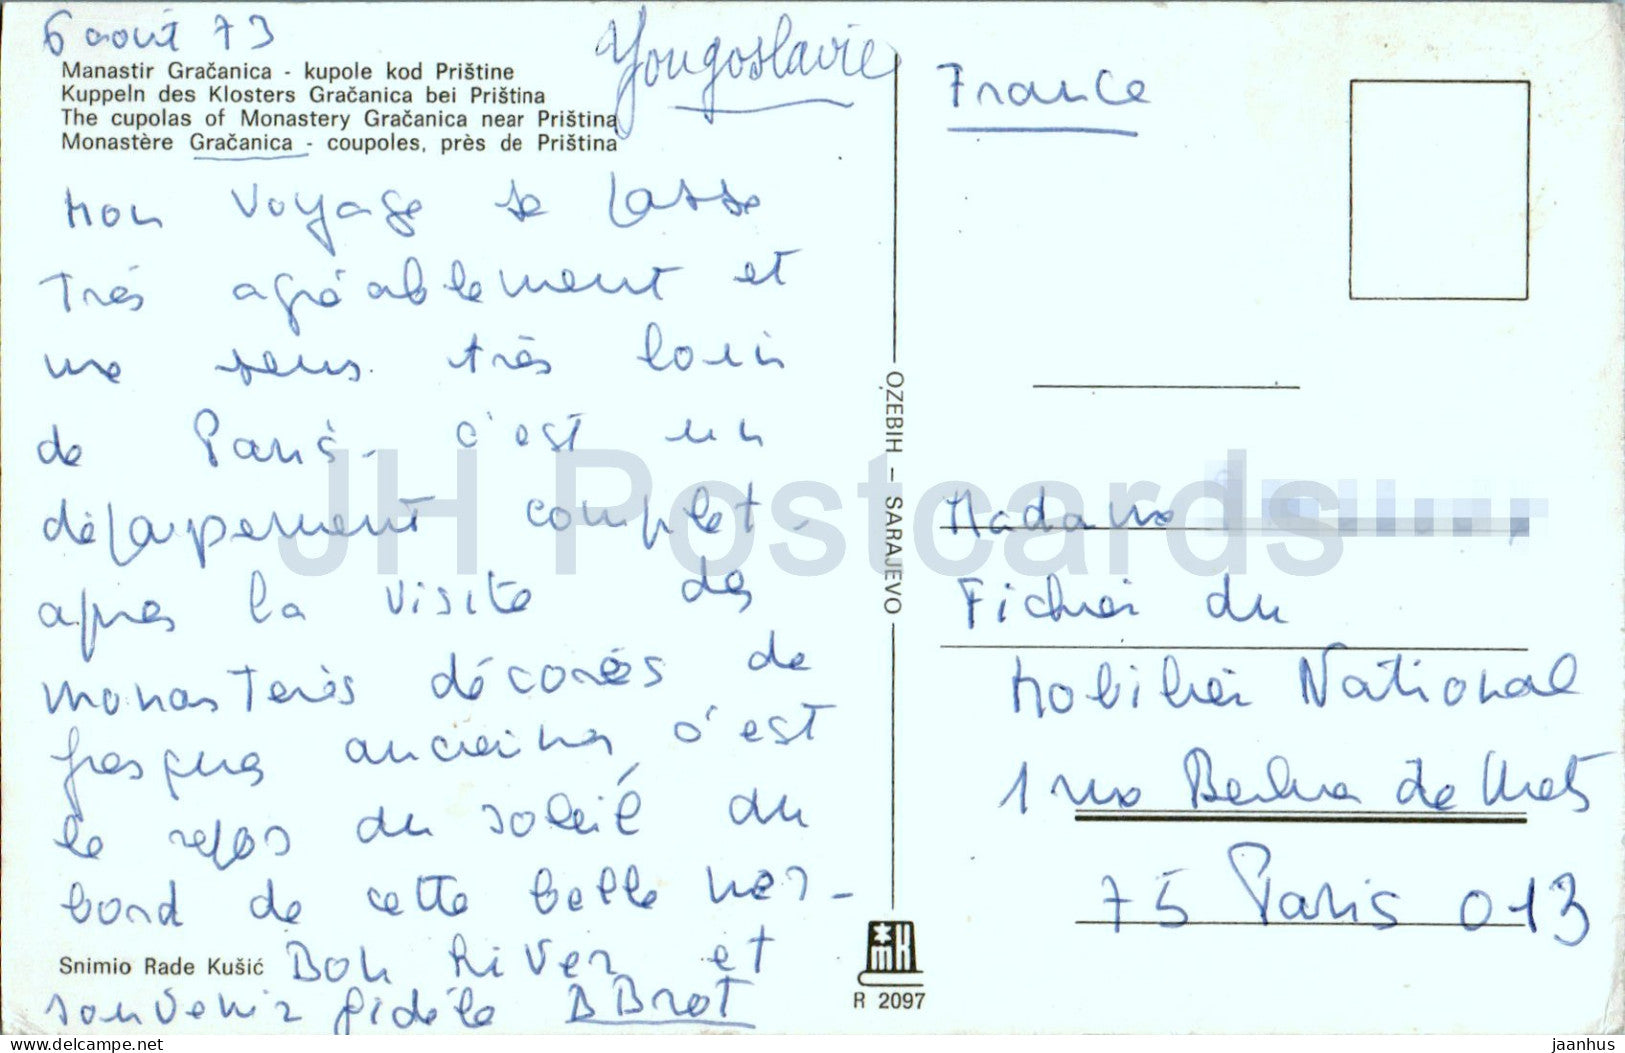 6 août 73
Yougoslavie
Manastir Gračanica - kupole kod Prištine
Kuppeln des Klosters Gračanica bei Priština
The cupolas of Monastery Gračanica near Priština
Monastère Gračanica - coupoles, près de Priština
Mon voyage se passe
très agréablement et
me sens très loin
de Paris. c'est un
dépaysement complet.
après la visite des
monastères décorés de
fresques anciennes, c'est
le repos au soleil au
bord de cette belle mer.
Bon hiver et
souvenir fidèle B Brot
Snimio Rade Kušić
OZEBIH – SARAJEVO
mK
R 2097
France
Madame
Fichier du
Mobilier National
1 rue Berbier de Mets
75 Paris 013
JH Postcards
delcampe.net
jaanhus